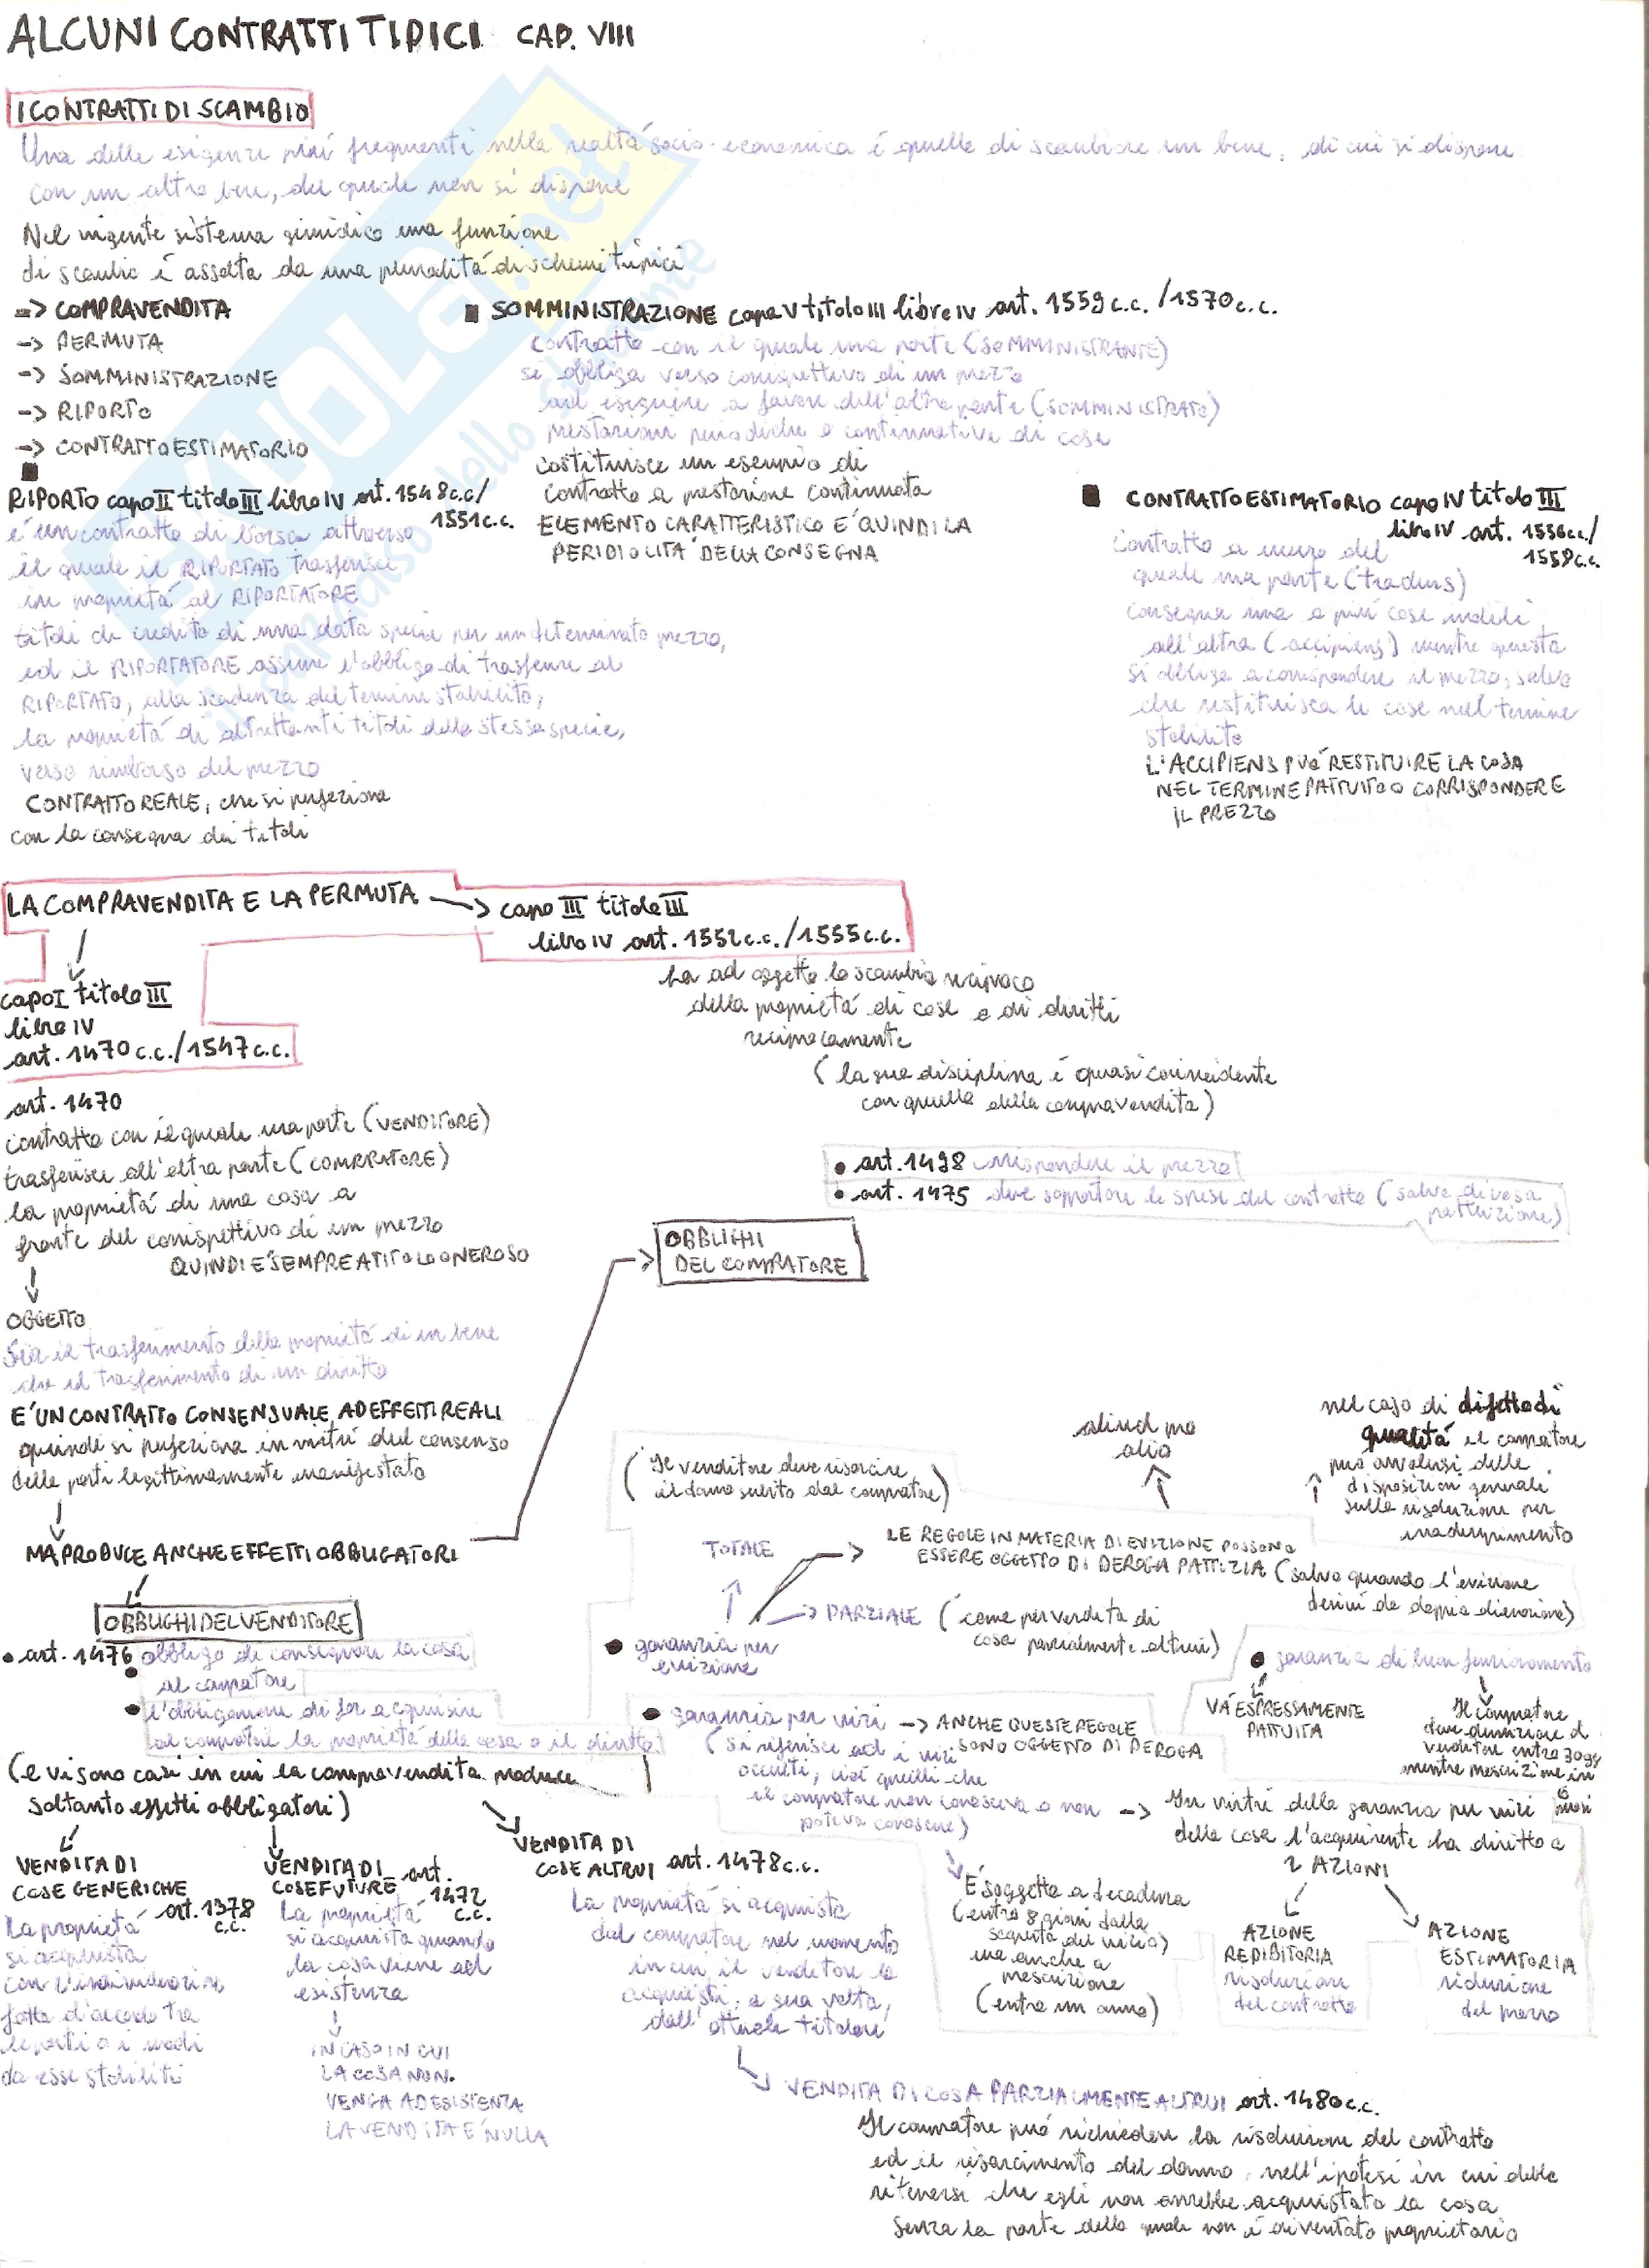 ALCUNI CONTRATTI TIPICI CAP. VIII
I CONTRATTI DI SCAMBIO
Una delle esigenze piú frequenti nella realtá socio-economica é quella di scambiare un bene, di cui si dispone
con un altro bene, del quale non si dispone
Nel vigente sistema giuridico una funzione
di scambio é assolta da una pluralitá di schemi tipici
-> COMPRAVENDITA
-> PERMUTA
-> SOMMINISTRAZIONE
-> RIPORTO
-> CONTRATTO ESTIMATORIO
■ SOMMINISTRAZIONE capo V titolo III libro IV art. 1559 c.c. /1570 c.c.
contratto con il quale una parte (SOMMINISTRANTE)
si obbliga verso corrispettivo di un prezzo
ad eseguire a favore dell'altra parte (SOMMINISTRATO)
prestazioni periodiche o continuative di cose
costituisce un esempio di
contratto a prestazione continuata
ELEMENTO CARATTERISTICO E' QUINDI LA
PERIDIOLITÁ DELLA CONSEGNA
■
RIPORTO capo II titolo III libro IV art. 1548 c.c/
1551 c.c.
é un contratto di borsa attraverso
il quale il RIPORTATO trasferisce
in proprietá al RIPORTATORE
titoli di credito di una data specie per un determinato prezzo,
ed il RIPORTATORE assume l'obbligo di trasferire al
RIPORTATO, alla scadenza del termine stabilito,
la proprietá di altrettanti titoli della stessa specie,
verso rimborso del prezzo
CONTRATTO REALE, che si perfeziona
con la consegna dei titoli
■ CONTRATTO ESTIMATORIO capo IV titolo III
libro IV art. 1556 c.c./
1558 c.c.
Contratto a mezzo del
quale una parte (tradens)
consegna una o piú cose mobili
all'altra (accipiens) mentre questa
si obbliga a corrispondere il prezzo, salvo
che restituisca le cose nel termine
stabilito
L'ACCIPIENS PUÓ RESTITUIRE LA COSA
NEL TERMINE PATTUITO O CORRISPONDERE
IL PREZZO
LA COMPRAVENDITA E LA PERMUTA -> capo III titolo III
libro IV art. 1552 c.c. /1555 c.c.
capo I titolo III
libro IV
art. 1470 c.c./1547 c.c.
ha ad oggetto lo scambio reciproco
della proprietá di cose o di diritti
reciprocamente
(la sua disciplina é quasi coincidente
con quella della compravendita)
art. 1470
contratto con il quale una parte (VENDITORE)
trasferisce all'altra parte (COMPRATORE)
la proprietá di una cosa a
fronte del corrispettivo di un prezzo
QUINDI E' SEMPRE A TITOLO ONEROSO
• art. 1498 corrispondere il prezzo
• art. 1475 deve sopportare le spese del contratto (salvo diversa
pattuizione)
OBBLIGHI
DEL COMPRATORE
OGGETTO
Sia il trasferimento della proprietá di un bene
che il trasferimento di un diritto
E' UN CONTRATTO CONSENSUALE AD EFFETTI REALI
quindi si perfeziona in virtú del consenso
delle parti legittimamente manifestato
MA PRODUCE ANCHE EFFETTI OBBLIGATORI
OBBLIGHI DEL VENDITORE
• art. 1476 obbligo di consegnare la cosa
al compratore
• l'obbligazione di far acquisire
al compratore la proprietá della cosa o il diritto
(e vi sono casi in cui la compravendita produce
soltanto effetti obbligatori)
(Il venditore deve risarcire
il danno subito dal compratore)
TOTALE
LE REGOLE IN MATERIA DI EVIZIONE POSSONO
ESSERE OGGETTO DI DEROGA PATTIZIA (salvo quando l'evizione
derivi da doppia alienazione)
-> PARZIALE (come per vendita di
cosa parzialmente altrui)
• garanzia per
evizione
aliud pro
alio
nel caso di difetto di
qualitá il compratore
puó avvalersi delle
disposizioni generali
sulla risoluzione per
inadempimento
• garanzia per vizi -> ANCHE QUESTE REGOLE
SONO OGGETTO DI DEROGA
(si riferisce ad i vizi
occulti, cioé quelli che
il compratore non conosceva o non
poteva conoscere)
• garanzia di buon funzionamento
VA ESPRESSAMENTE
PATTUITA
Il compratore
deve denunzione al
venditore entro 30gg
mentre prescrizione in
6 mesi
-> In virtú della garanzia per vizi
della cosa l'acquirente ha diritto a
2 AZIONI
É soggetta a decadenza
(entro 8 giorni dalla
scoperta del vizio)
ma anche a
prescrizione
(entro un anno)
AZIONE
REDIBITORIA
risoluzione
del contratto
AZIONE
ESTIMATORIA
riduzione
del prezzo
VENDITA DI
COSE GENERICHE
art. 1378
c.c.
La proprietá
si acquista
con l'individuazione
fatta d'accordo tra
le parti o i modi
da esse stabiliti
VENDITA DI
COSE FUTURE art.
1472
c.c.
La proprietá
si acquista quando
la cosa viene ad
esistenza
IN CASO IN CUI
LA COSA NON
VENGA AD ESISTENZA
LA VENDITA E' NULLA
VENDITA DI
COSE ALTRUI art. 1478 c.c.
La proprietá si acquista
dal compratore nel momento
in cui il venditore la
acquisti, a sua volta,
dall'attuale titolare
VENDITA DI COSA PARZIALMENTE ALTRUI art. 1480 c.c.
Il compratore puó richiedere la risoluzione del contratto
ed il risarcimento del danno, nell'ipotesi in cui debba
ritenersi che egli non avrebbe acquistato la cosa
senza la parte della quale non é diventato proprietario
SKUOLA.net
il paradiso dello studente